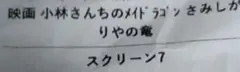 映画 小林さんちのﾒｲﾄﾞﾗｺﾞﾝ さみしが
りやの竜
スクリーン7